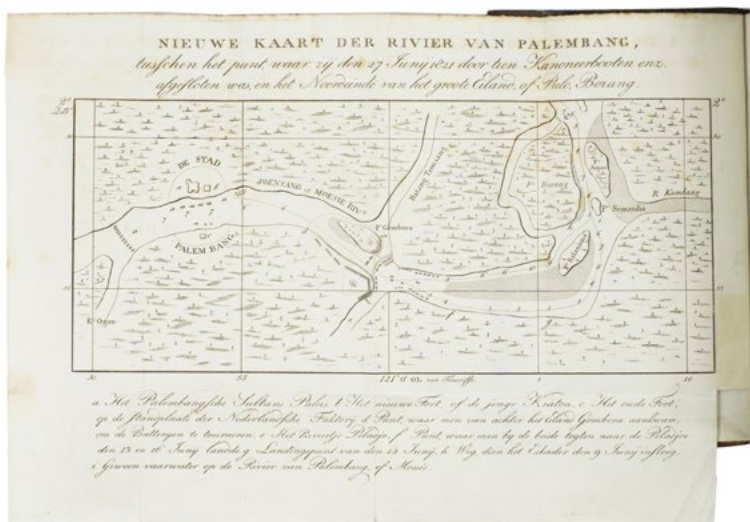 NIEUWE KAART DER RIVIER VAN PALEMBANG,
tusschen het punt, waar zy den 27 Junij 1821 door tien Kanoneerbooten enz.
afgesloten was, en het Noordeinde van het groote Eiland, of Pulo, Borang.
2°
2°
DE STAD
SOENSANG of MOESIE RIVR
PALEMBANG
Pº Gombora
Pº Borang
Pº Semanda
R. Kandang
50
55
121° 0' OL. van Teneriffe
5
10
a Het Palembangsche Sultans Paleis b Het nieuwe Fort, of de jonge Kraton. c Het oude Fort,
op de standplaats der Nederlandsche Faktory. d Punt, waar men van achter het Eiland Gombora aankwam,
om de Batteryen te tourneren. e Het Riviertje Peladjo. f Punt, waar men by de beide togten naar de Peladjoe
den 13 en 16 Juny landde. g Landingspunt van den 14 Junij. h Weg, dien het Eskader den 9 Juny insloeg.
i Gewoon vaarwater op de Rivier van Palembang, of Moesie.